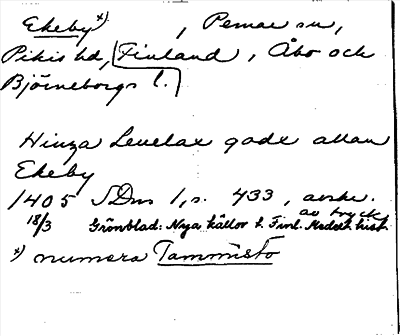 Ekeby *) , Pemar sn,
Pikis hd, (Finland, Åbo och
Björneborgs l.)
Hinza Levelax gode allan
Ekeby
1405 SDns 1, s. 433, avskr.
18/3 av tryck
Grönblad: Nya källor t. Finl. Medelt. hist.
*) numera Tammisto